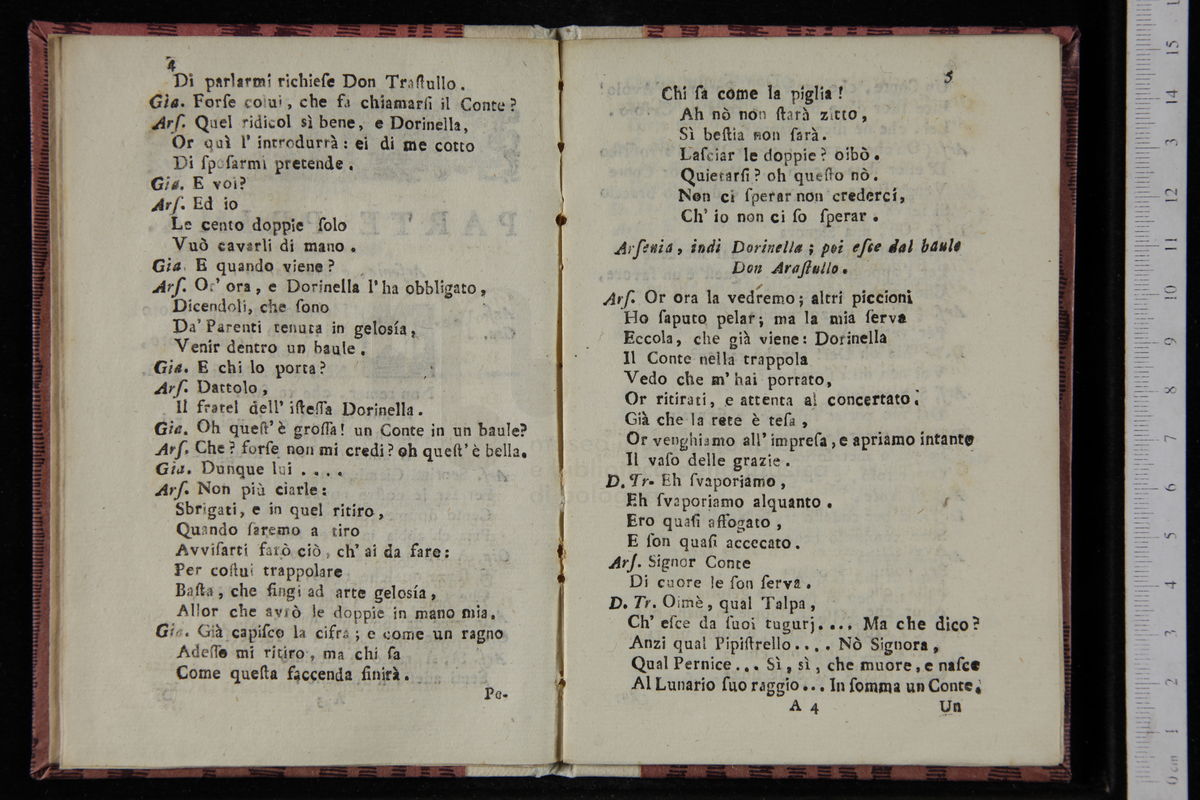 4
Di parlarmi richieſe Don Traſtullo.
Gia. Forſe colui, che fa chiamarſi il Conte?
Arſ. Quel ridicol sì bene, e Dorinella,
Or quì l' introdurrà: ei di me cotto
Di ſpoſarmi pretende.
Gia. E voi?
Arſ. Ed io
Le cento doppie ſolo
Vuò cavarli di mano.
Gia. E quando viene?
Arſ. Or' ora, e Dorinella l'ha obbligato,
Dicendoli, che ſono
Da' Parenti tenuta in gelosía,
Venir dentro un baule.
Gia. E chi lo porta?
Arſ. Dattolo,
Il fratel dell' iſteſſa Dorinella.
Gia. Oh queſt' è groſſa! un Conte in un baule?
Arſ. Che? forſe non mi credi? oh queſt' è bella.
Gia. Dunque lui ....
Arſ. Non più ciarle:
Sbrigati, e in quel ritiro,
Quando ſaremo a tiro
Avviſarti farò ciò, ch' ai da fare:
Per coſtui trappolare
Baſta, che fingi ad arte gelosía,
Allor che avrò le doppie in mano mia.
Gia. Già capiſco la cifra; e come un ragno
Adeſſo mi ritiro, ma chi ſa
Come queſta faccenda finirà.
Pe-
5
Chi ſa come la piglia!
Ah nò non ſtarà zitto,
Sì beſtia non ſarà.
Laſciar le doppie? oibò.
Quietarſi? oh queſto nò.
Non ci ſperar non crederci,
Ch' io non ci ſo ſperar.
Arſenia, indi Dorinella; poi eſce dal baule
Don Araſtullo.
Arſ. Or ora la vedremo; altri piccioni
Ho ſaputo pelar; ma la mia ſerva
Eccola, che già viene: Dorinella
Il Conte nella trappola
Vedo che m' hai portato,
Or ritirati, e attenta al concertato.
Già che la rete è teſa,
Or venghiamo all' impreſa, e apriamo intanto
Il vaſo delle grazie.
D. Tr. Eh ſvaporiamo,
Eh ſvaporiamo alquanto.
Ero quaſi aſſogato,
E ſon quaſi accecato.
Arſ. Signor Conte
Di cuore le ſon ſerva.
D. Tr. Oimè, qual Talpa,
Ch' eſce da ſuoi tugurj.... Ma che dico?
Anzi qual Pipiſtrello.... Nò Signora,
Qual Pernice... Sì, sì, che muore, e naſce
Al Lunario ſuo raggio... In ſomma un Conte.
A 4
Un